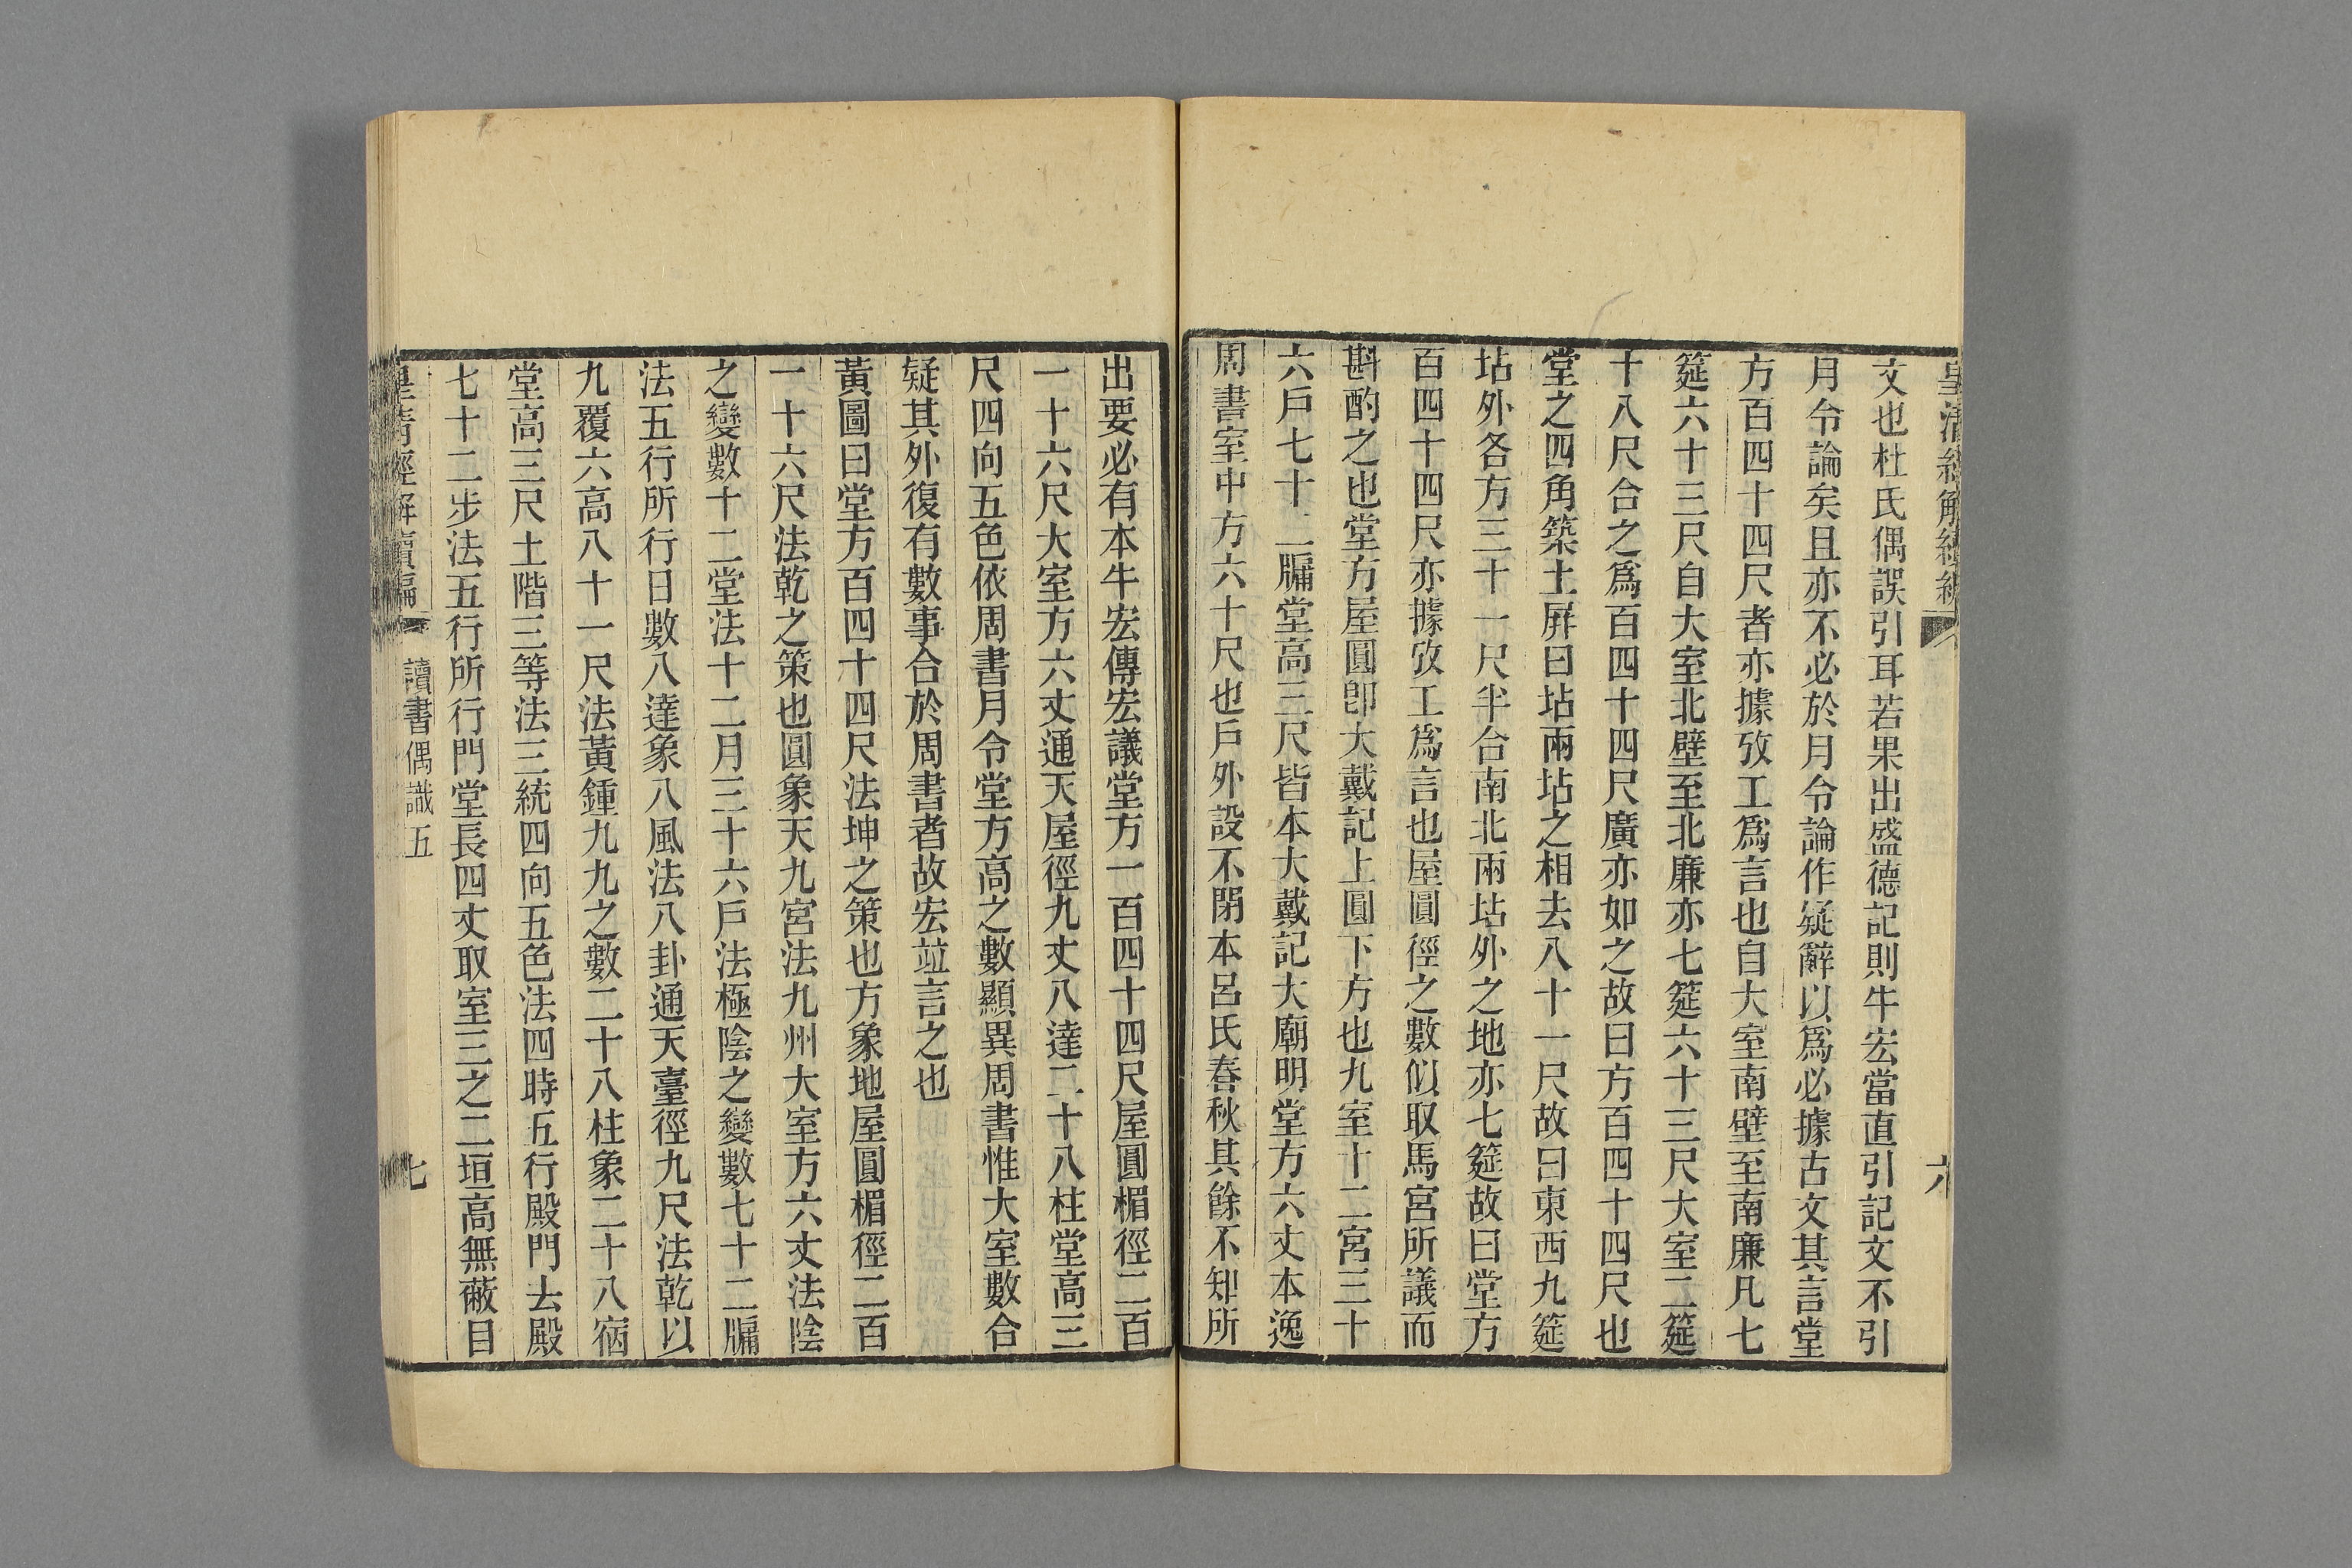 皇清經解續編
六
文也杜氏偶誤引耳若果出盛德記則牛宏當直引記文不引
月令論矣且亦不必於月令論作疑辭以爲必據古文其言堂
方百四十四尺者亦據攷工爲言也自大室南壁至南廉凡七
筵六十三尺自大室北壁至北廉亦七筵六十三尺大室二筵
十八尺合之爲百四十四尺廣亦如之故曰方百四十四尺也
堂之四角築土屛曰坫兩坫之相去八十一尺故曰東西九筵
坫外各方三十一尺半合南北兩坫外之地亦七筵故曰堂方
百四十四尺亦據攷工爲言也屋圓徑之數似取馬宮所議而
斟酌之也堂方屋圓卽大戴記上圓下方也九室十二宮三十
六戶七十二牖堂高三尺皆本大戴記大廟明堂方六丈本逸
周書室中方六十尺也戶外設不閉本呂氏春秋其餘不知所
出要必有本牛宏傳宏議堂方一百四十四尺屋圓楣徑二百
一十六尺大室方六丈通天屋徑九丈八達二十八柱堂高三
尺四向五色依周書月令堂方高之數顯異周書惟大室數合
疑其外復有數事合於周書者故宏竝言之也
黃圖曰堂方百四十四尺法坤之策也方象地屋圓楣徑二百
一十六尺法乾之策也圓象天九宮法九州大室方六丈法陰
之變數十二堂法十二月三十六戶法極陰之變數七十二牖
法五行所行日數八達象八風法八卦通天臺徑九尺法乾以
九覆六高八十一尺法黃鍾九九之數二十八柱象二十八宿
堂高三尺土階三等法三統四向五色法四時五行殿門去殿
七十二步法五行所行門堂長四丈取室三之二垣高無蔽目
皇清經解續編
讀書偶識五
七